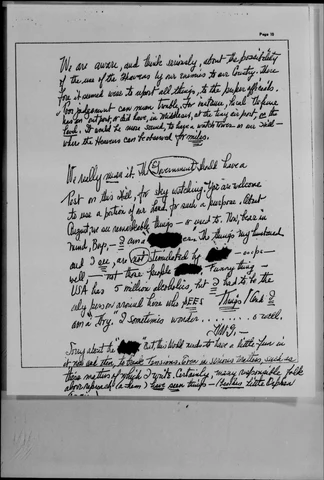 Page 10
We are aware, and think seriously, about the possibility
of the use of the Heavens by our enemies to our Country, there
for it seemed wise to report all things, to the proper officials.
Poor judgement can mean trouble, for instance, local
has an out post, or did have, in Middlesex, at the tiny air port, on the
land. It would be more sound, to have a watch tower on our hill
where the Heavens can be observed for miles.
We really mean it. The Government should have a
Post on this Hill, for sky watching. Yes are welcome
to use a portion of our land for such a purpose. About
August, we saw remarkable things - used to. Now, bear in
mind, Boys, - I am a
The things my husband
and I see, are not stimulated by
well - not those people
Funny thing -
USA has 5 million alcoholics, but I had to be the
only person around here who SEES Things! And I
am a "Boy," I sometimes wonder . . . . . . . . o well.
Sorry about the
But, this World needs to have a little fun in
it now and then, to break tensions. Even in serious matters, such as
those matters of which I write. Certainly, many responsible folk
have seen things - (Besides Little Orphan